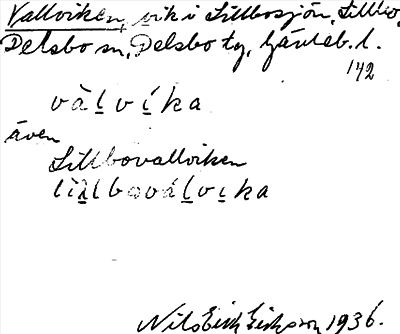 Vallviken, vik i Lillbosjön, Lillbo,
Delsbo sn, Delsbo tg, Gävleb. l.
142
vàl̲vi̲ka
även
Lillbovallviken
lìl̲lbová̲l̲vi̲ka
Nils Erik Erikson 1936.